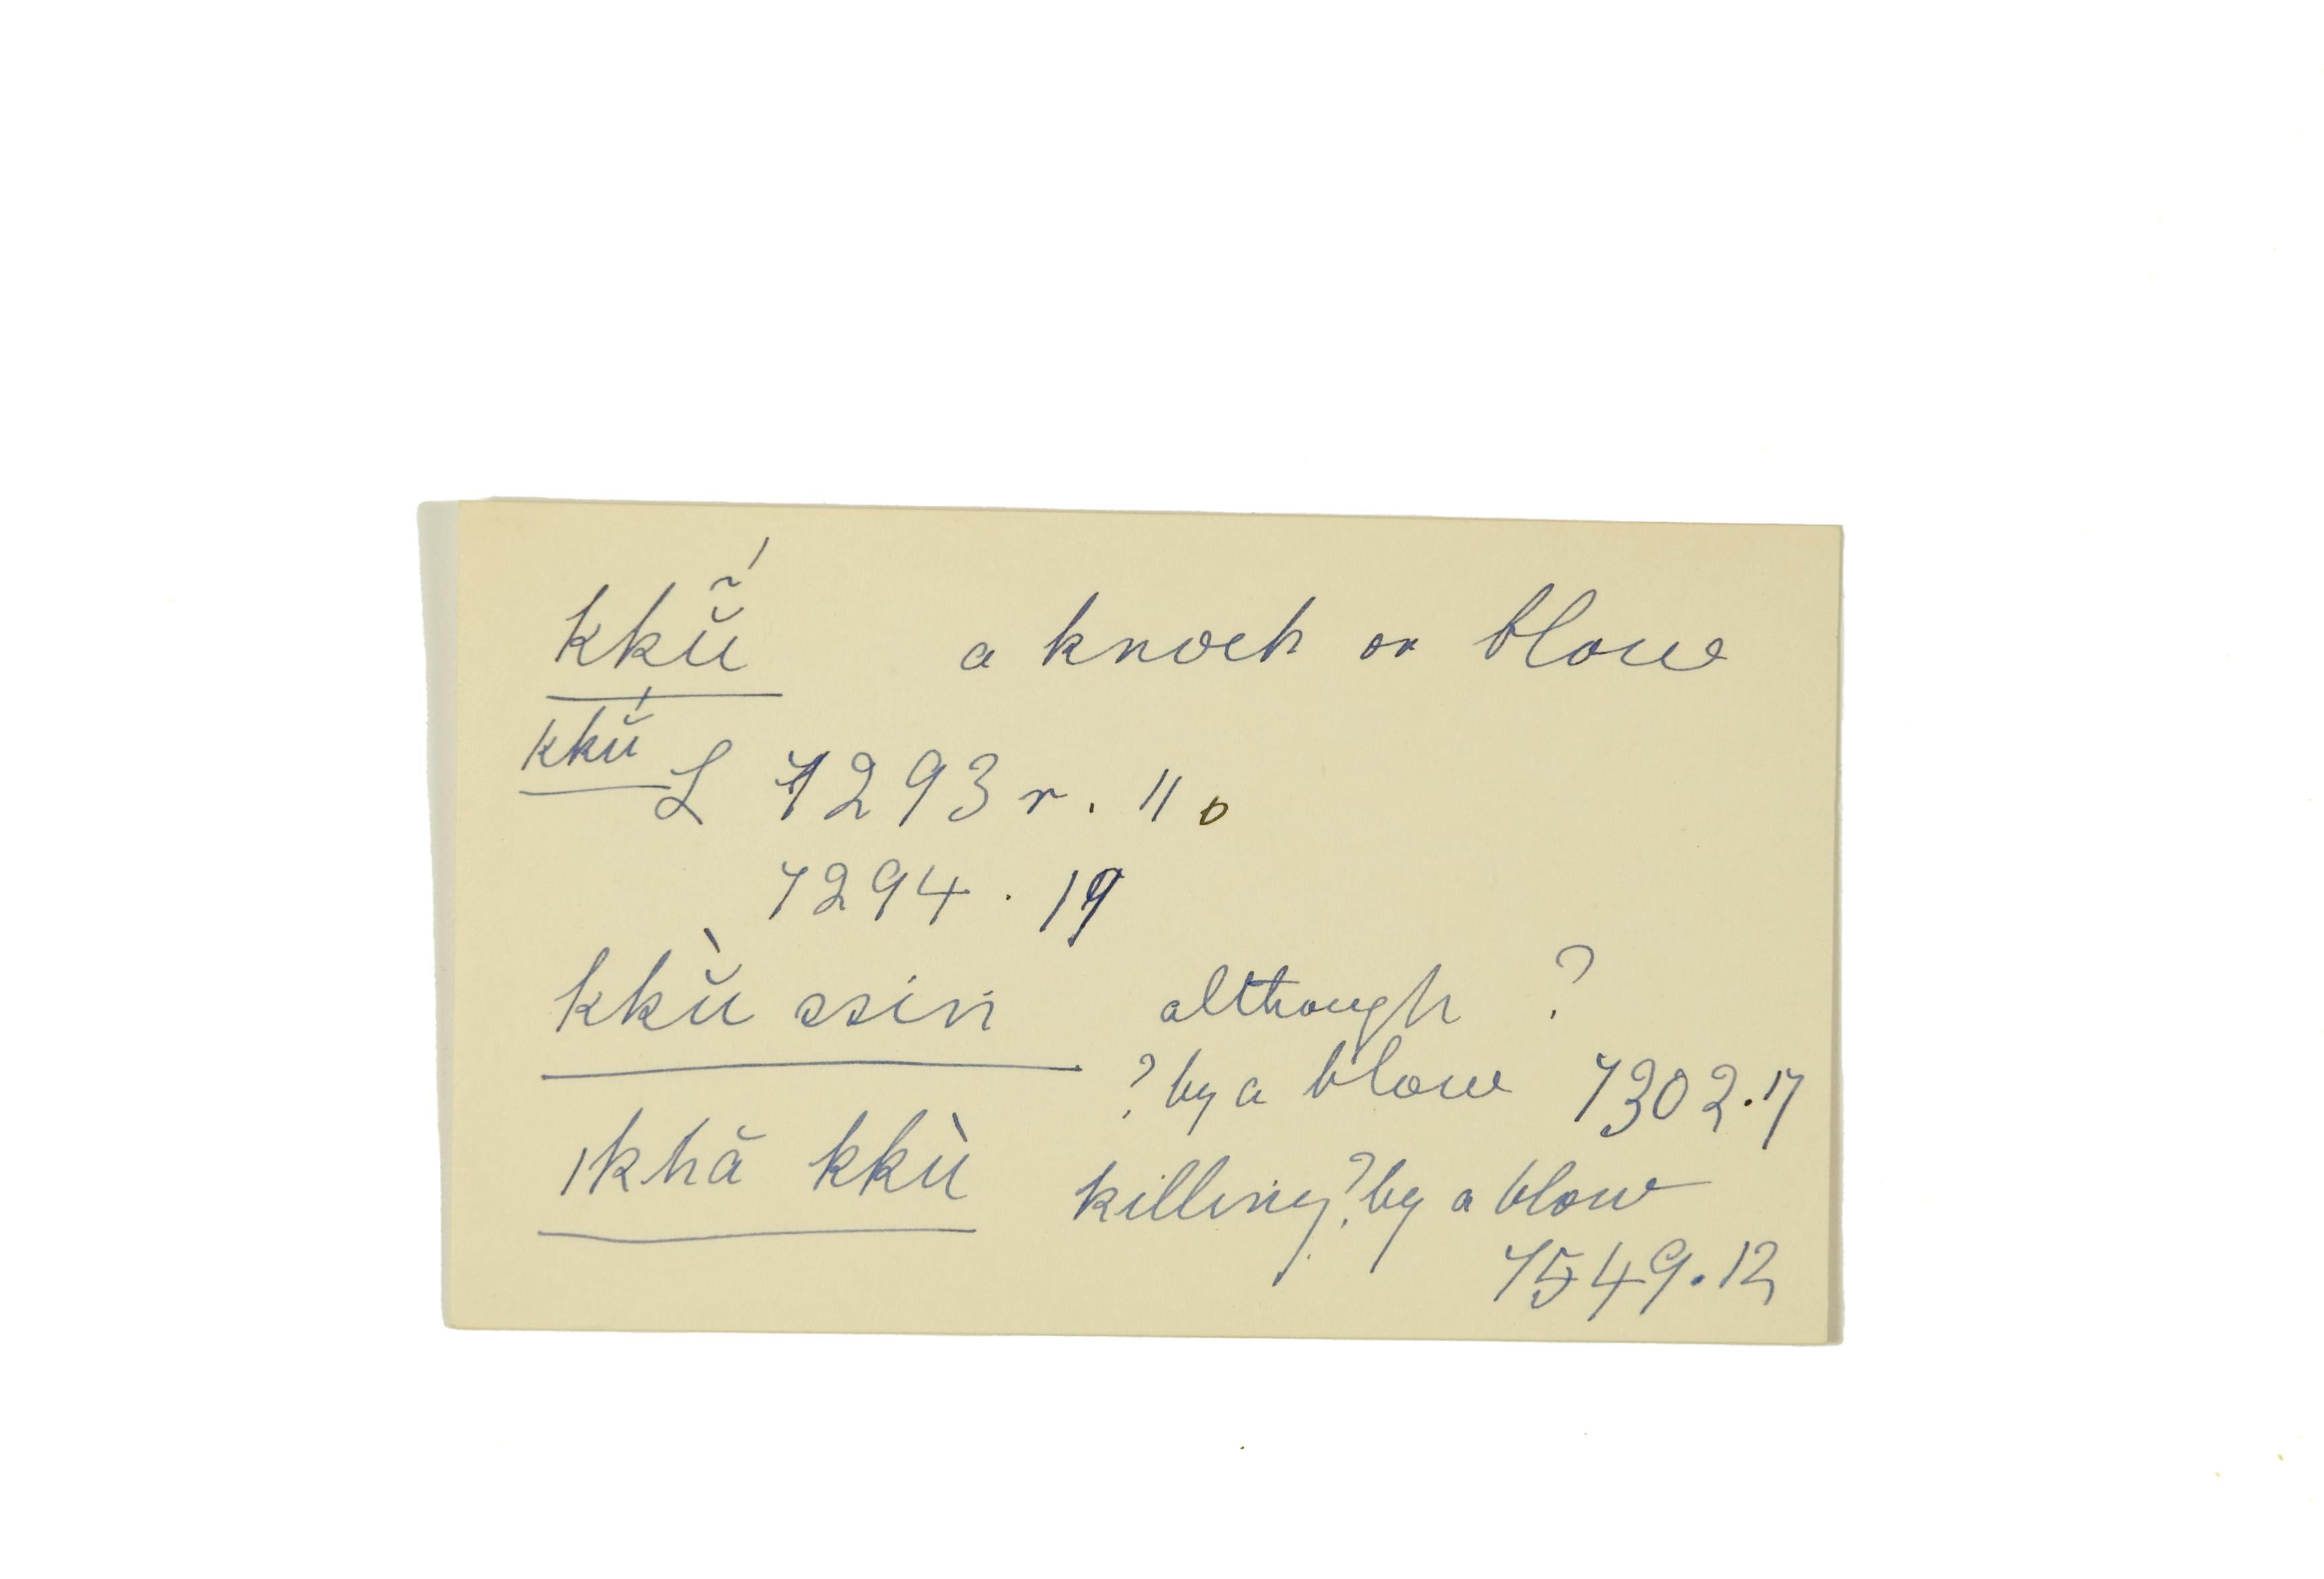 kkŭ̃́ a knock or blow
kkŭ́
L 7293 r. 11 o
7294. 19
kkŭ̀ ssin although ?
? by a blow 7302.17
ıkhă kkù killing? by a blow
7549.12